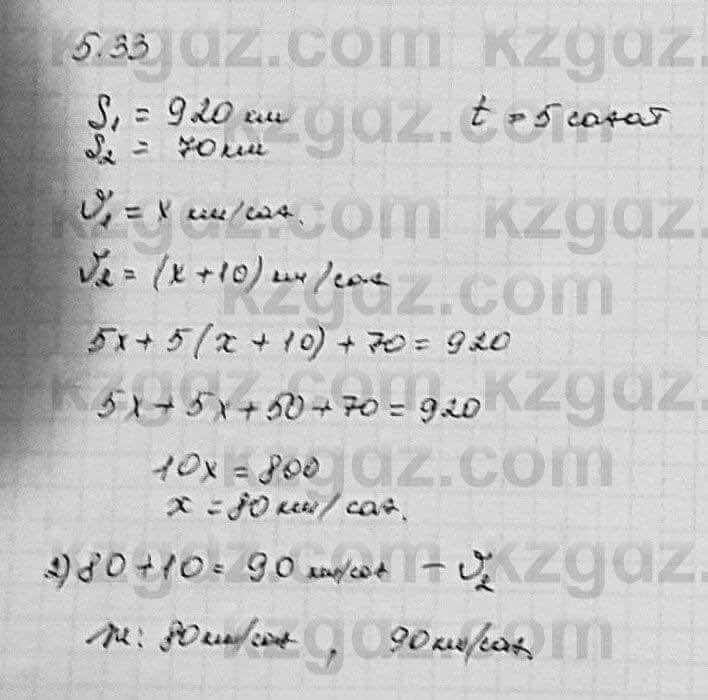 5.33
S₁ = 920 км t = 5 сағат
S₂ = 70 км
V₁ = x км/сағ.
V₂ = (x + 10) км/сағ
5x + 5(x + 10) + 70 = 920
5x + 5x + 50 + 70 = 920
10x = 800
x = 80 км/сағ.
2) 80 + 10 = 90 км/сағ - V₂
Ж: 80 км/сағ, 90 км/сағ.
kzgaz.com